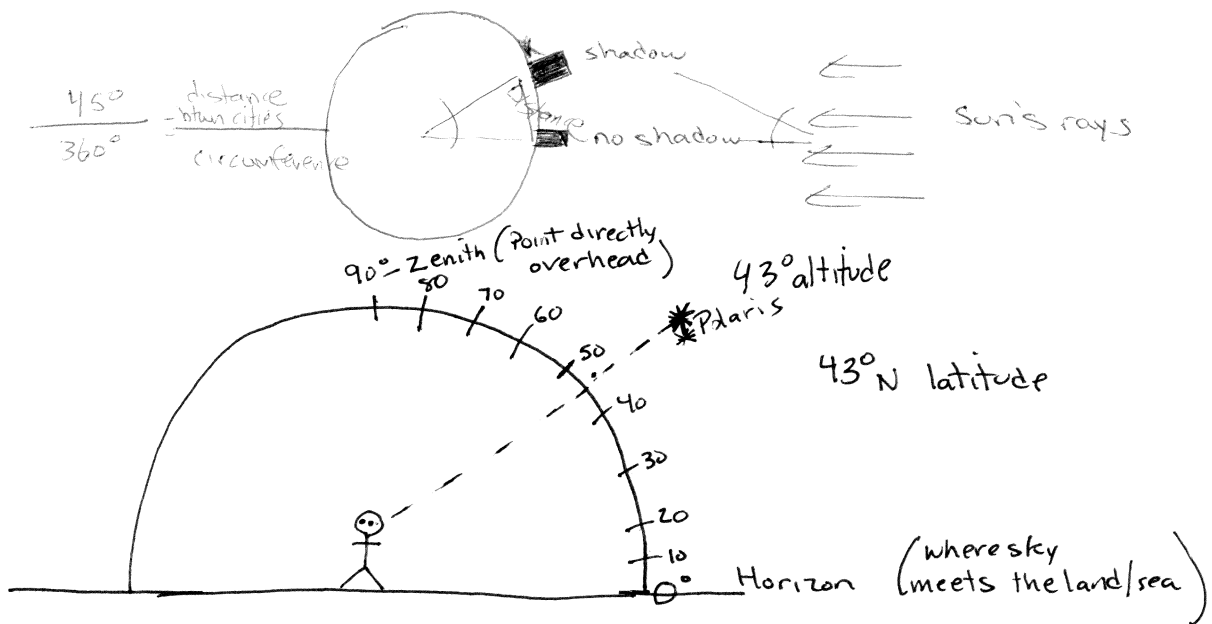 shadow
45°
360°
=
distance
btwn cities
circumference
distance
no shadow
sun's rays
90° - Zenith (Point directly
overhead)
80
70
60
50
40
30
20
10
0°
43° altitude
Polaris
43° N latitude
Horizon
(where sky
meets the land/sea)